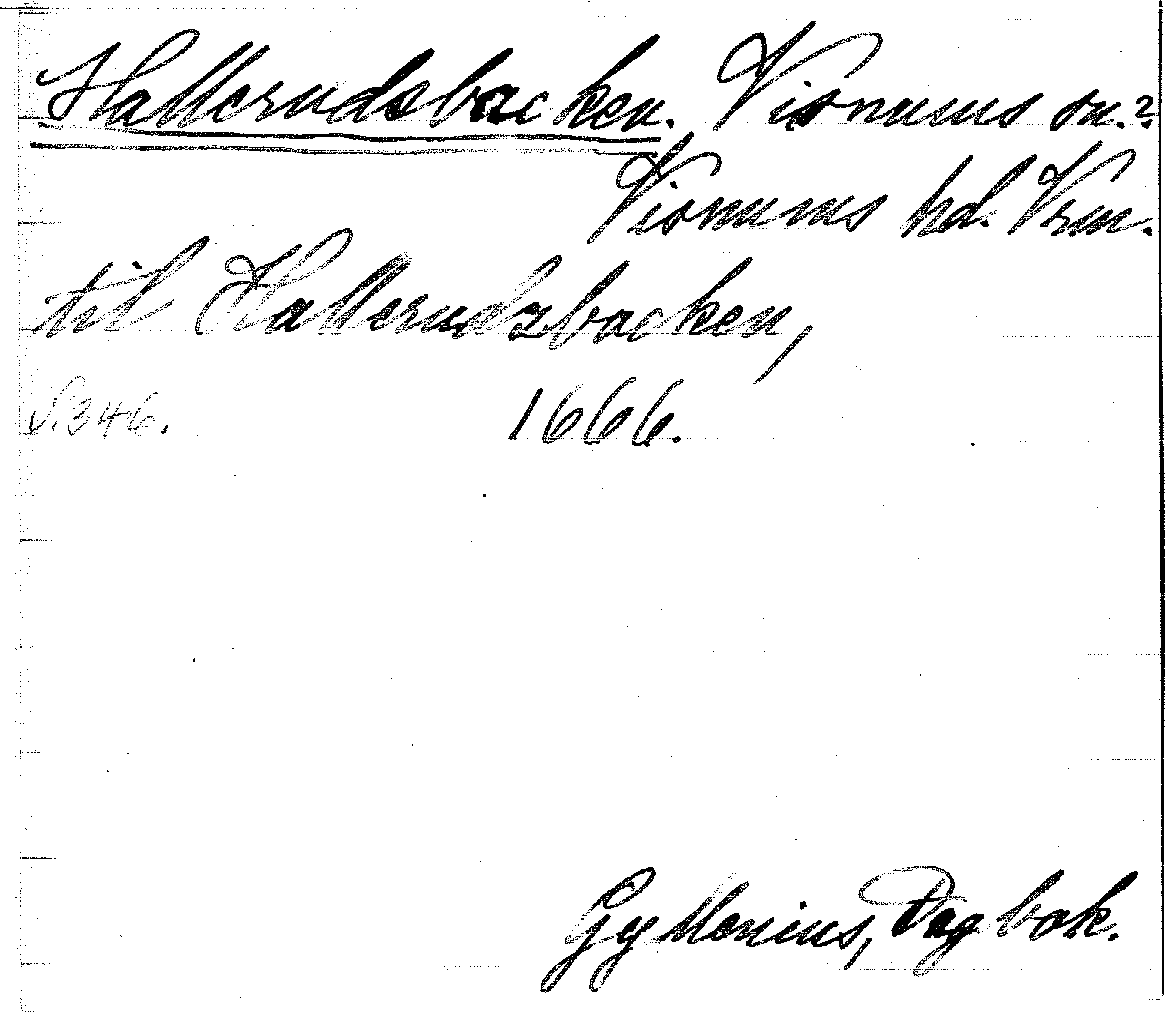 Hallerudsbacken. Visnums sn.?
Visnums hd. Vrm.
til Hallerudzbacken,
S. 346. 1666.
Gyllenius, Dagbok.